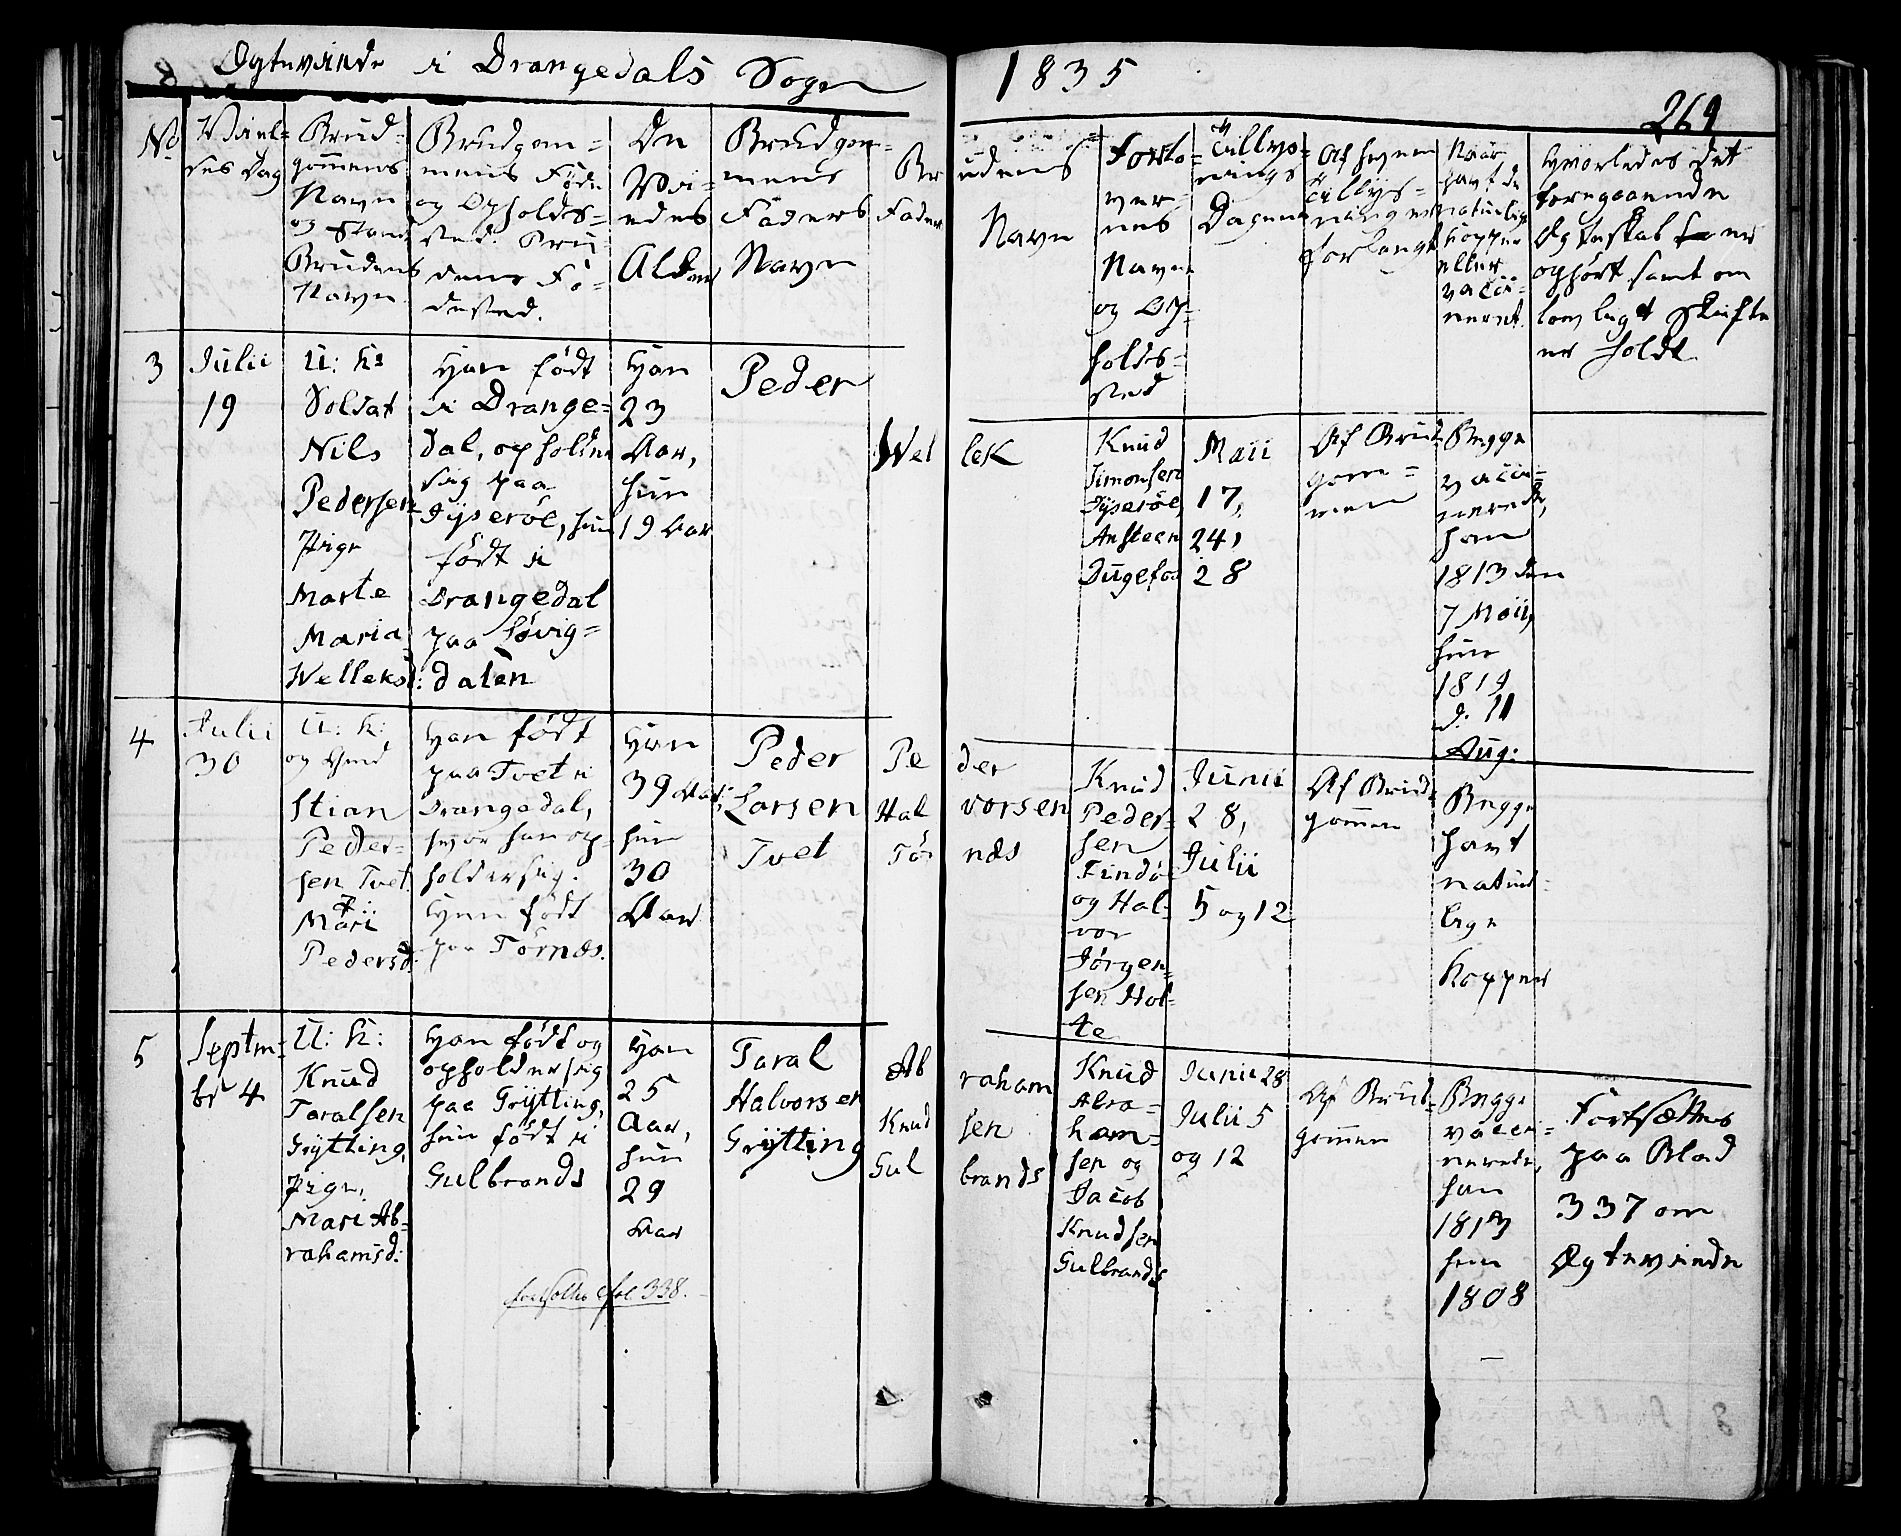 Ægteviede i Drangedals Sogn
1835
269
No
Vviel=
ses Dag
Brud=
gommens
Navn
og Stand
Brudens
Navn
Brudgom=
mens Føde
og Opholds=
sted. Bru=
dens Fø=
desied.
De
Vvi=
edes
Alder
Brudgom=
mens
Faders
Navn
Brudens
Faders Navn
Forlo=
ver=
nes
Navne
og Op=
holds=
sted
Tillys=
nings
Dagene
Af hvem
Tillys=
ningen
forlangt
Naar
havt de
naturlige
Kopper
eller
vacci=
neret.
Hvorledes det
foregaaende
Ægteskab er
ophørt samt om
lovligt Skifte
er holdt
3
Julii
19
U: K:
Soldat
Nils
Pedersen
Pige
Marte
Maria
Welleksd:
Han født
i Drange=
dal, opholder
sig paa
Dyserøe, hun
født i
Drangedal
paa Løvig=
dalen
Han
23
Aar,
hun
19 Aar
Peder
Wellek
Knud
Simonsen
Dyserøe,
Ansteen
Dugefos
Maii
17,
24,
28
Af Brud=
gom=
men
Begge
vacci=
nerede,
han
1813 den
7 Maii,
hun
1819
d. 11
Aug:
4
Julii
30
U: K:
og Gmd
Stian
Peder=
sen Tvet
P:
Mari
Pedersd:
Han født
paa Tvet i
Drangedal,
hvor han op=
holder sig.
Hun født
paa Tørnæs.
Han
39 Aar,
hun
30
Aar
Peder
Larsen
Tvet
Peder
Halvorsen
Tørnæs
Knud
Peder=
sen
Findø
og Hal=
vor
Jørgen=
sen Hol=
te
Junii
28,
Julii
5 og 12
Af Brud=
gommen
Begge
havt
natur=
lige
Kopper
5
Septem=
br 4
U: K:
Knud
Taralsen
Grytting,
Pige,
Mari Ab=
rahamsd:
Han født og
opholder sig
paa Grytting,
hun født i
Gulbrands
Han
25
Aar,
hun
29
Aar
Taral
Halvorsen
Grytting
Abraham
Knudsen
Gulbrands
Knud
Abra=
ham=
sen og
Jacob
Knudsen
Gulbrands
Junii 28
Julii 5
og 12
Af Brud=
gommen
Begge
vacci=
nerede,
han
1813
hun
1808
Fortsættes
paa Blad
337 om
Ægteviede
fortsættes fol 338.